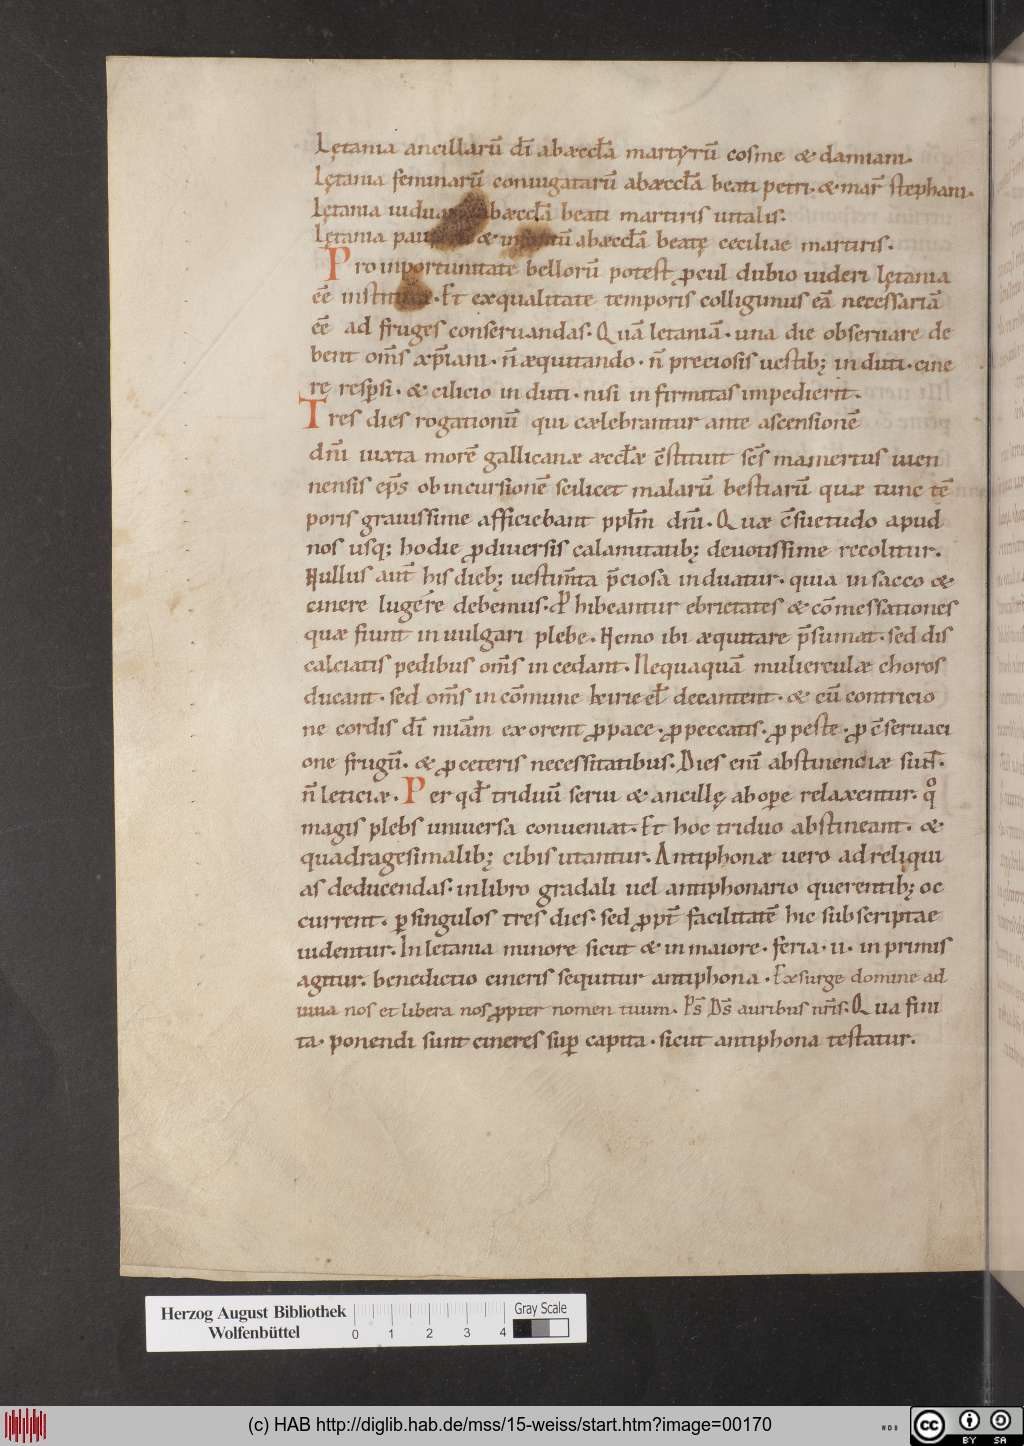 Lętania ancillarū dī abæccl̄a martyrū cosme & damiani.
Lętania feminarū coniugatarū abæccl̄a beati petri · & mar̄ stephani.
Lętania uidua abæccl̄a beati martiris uitalis.
Lętania & abæccl̄a beatę ceciliae martiris.
Pro inportunitate bellorū potest ꝓcul dubio uideri lętania
eē · Et exqualitate temporis colligimus eā necessariā
eē ad fruges conseruandas. Quā letaniā · una die obseruare de
bent om̄s xp̄iani · n̄ æquitando · n̄ preciosis uestib; induti · cine
re resp̱si · & cilicio induti · nisi infirmitas impedierit.
Tres dies rogationū qui cælebrantur ante ascensionē
dn̄i iuxta morē gallicanæ æccl̄æ c̄stituit sc̄s mamertus uien
nensis ep̄s ob incursionē scilicet malarū bestiarū quæ tunc tē
poris grauissime afficiebant ppl̄m dn̄i. Quæ c̄suetudo apud
nos usq; hodie ꝓ diuersis calamitatib; deuotissime recolitur.
Nullus aut̄ his dieb; uestim̄ta p̄ciosa induatur · quia in sacco &
cinere lugere debemus. ꝓhibeantur ebrietates & cōmessationes
quæ fiunt in uulgari plebe. Nemo ibi æquitare p̄sumat · sed dis
calciatis pedibus om̄s incedant. Nequaquā mulierculæ choros
ducant · sed om̄s in cōmune keirie el̄ decantent · & cū contricio
ne cordis dī miām exorent ꝓ pace · ꝓ peccatis · ꝓ peste · ꝓ c̄seruaci
one frugū · & ꝓ ceteris necessitatibus. Dies eni̅ abstinenciæ sūt ·
n̄ leticiæ. Per qd̄ triduū serui & ancillę ab oꝑe relaxentur. qͦ
magis plebs uniuersa conueniat. Et hoc triduo abstineant · &
quadragesimalib; cibis utantur. Antiphonæ uero ad reliqui
as deducendas · in libro gradali uel antiphonario querentib; oc
current. ꝑ singulos tres dies · sed ꝓpt̄ facilitatē hic subscriptae
uidentur. In letania minore sicut & in maiore · feria · ii · in primis
agitur. benedictio cineris sequitur antiphona · Exsurge domine ad
iuua nos et libera nos ꝓpter nomen tuum. Ps̄ Ds̄ auribus nr̄is. Qua fini
ta · ponendi sunt cineres suꝑ capita · sicut antiphona testatur.
Herzog August Bibliothek
Wolfenbüttel
0 1 2 3 4
Gray Scale
(c) HAB http://diglib.hab.de/mss/15-weiss/start.htm?image=00170
WDB
cc BY SA